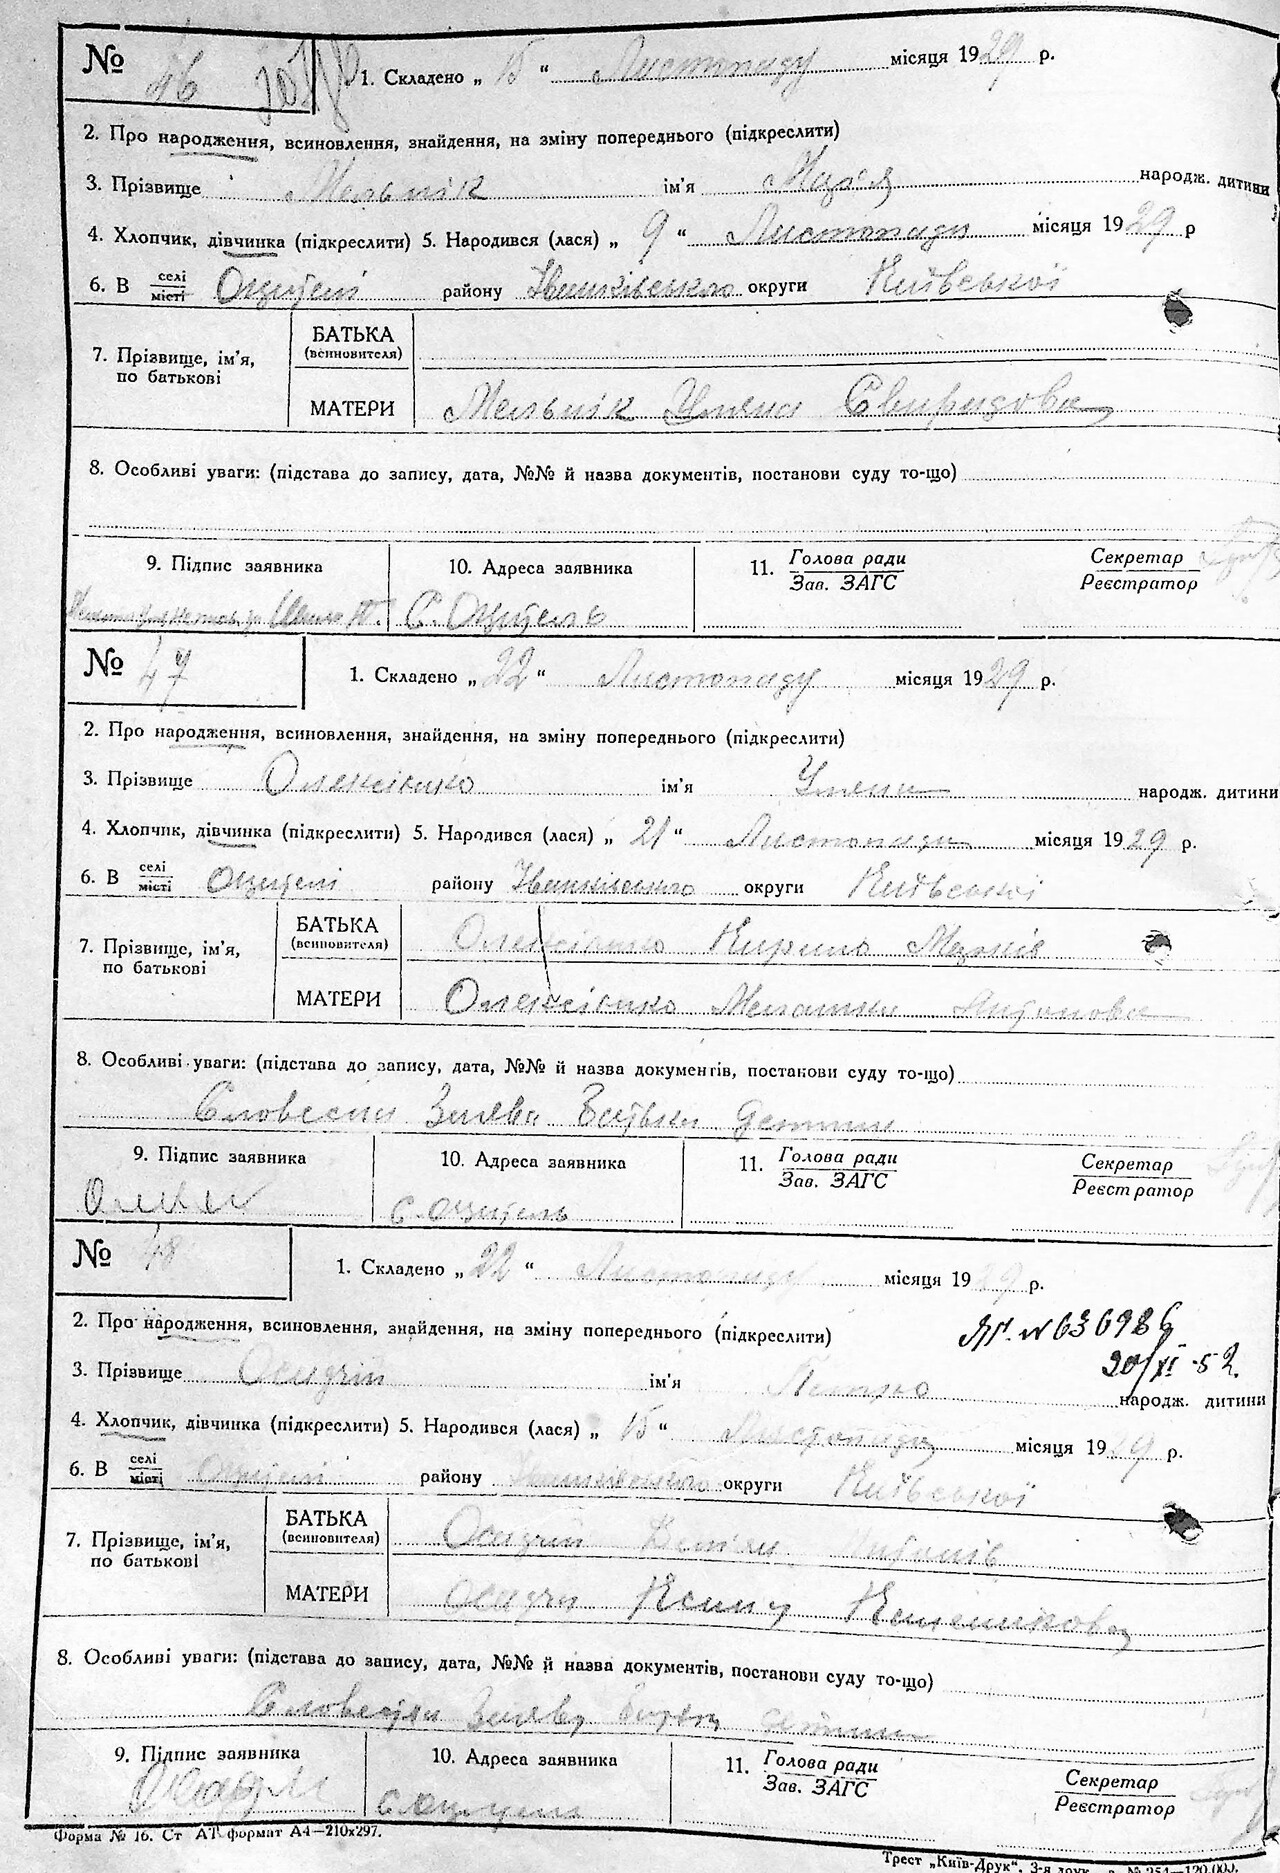 № 46 1. Складено „ 15 “ Листопаду місяця 1929 р.
2. Про народження, всиновлення, знайдення, на зміну попереднього (підкреслити)
3. Прізвище Мельник ім'я Марія народж. дитини
4. Хлопчик, дівчинка (підкреслити) 5. Народився (лася) „ 9 “ Листопада місяця 1929 р
6. В селі місті Ощителі району округи Київської
7. Прізвище, ім'я, по батькові
БАТЬКА (всиновителя)
МАТЕРИ Мельник Уляна Свиридова
8. Особливі уваги: (підстава до запису, дата, №№ й назва документів, постанови суду то-що)
9. Підпис заявника 10. Адреса заявника 11. Голова ради Зав. ЗАГС Секретар Реєстратор
С. Ощитель
№ 47 1. Складено „ 22 “ Листопаду місяця 1929 р.
2. Про народження, всиновлення, знайдення, на зміну попереднього (підкреслити)
3. Прізвище Олексієнко ім'я Уляна народж. дитини
4. Хлопчик, дівчинка (підкреслити) 5. Народився (лася) „ 21 “ Листопада місяця 1929 р.
6. В селі місті Ощителі району округи Київської
7. Прізвище, ім'я, по батькові
БАТЬКА (всиновителя) Олексієнко Кирило Марків
МАТЕРИ Олексієнко Антонова
8. Особливі уваги: (підстава до запису, дата, №№ й назва документів, постанови суду то-що)
Словесна Заява Батька
9. Підпис заявника 10. Адреса заявника 11. Голова ради Зав. ЗАГС Секретар Реєстратор
С. Ощитель
№ 48 1. Складено „ 22 “ Листопаду місяця 1929 р.
2. Про народження, всиновлення, знайдення, на зміну попереднього (підкреслити)
№ 636986
20/XI-52.
3. Прізвище Осадчий ім'я Петро народж. дитини
4. Хлопчик, дівчинка (підкреслити) 5. Народився (лася) „ 15 “ Листопада місяця 1929 р.
6. В селі місті Ощителі району округи Київської
7. Прізвище, ім'я, по батькові
БАТЬКА (всиновителя) Осадчий Антонів
МАТЕРИ Осадча
8. Особливі уваги: (підстава до запису, дата, №№ й назва документів, постанови суду то-що)
Словесна Заява
9. Підпис заявника 10. Адреса заявника 11. Голова ради Зав. ЗАГС Секретар Реєстратор
С. Ощитель
Форма № 16. Ст АТ формат А4—210х297.
Трест „Київ-Друк“, 3-я друк.